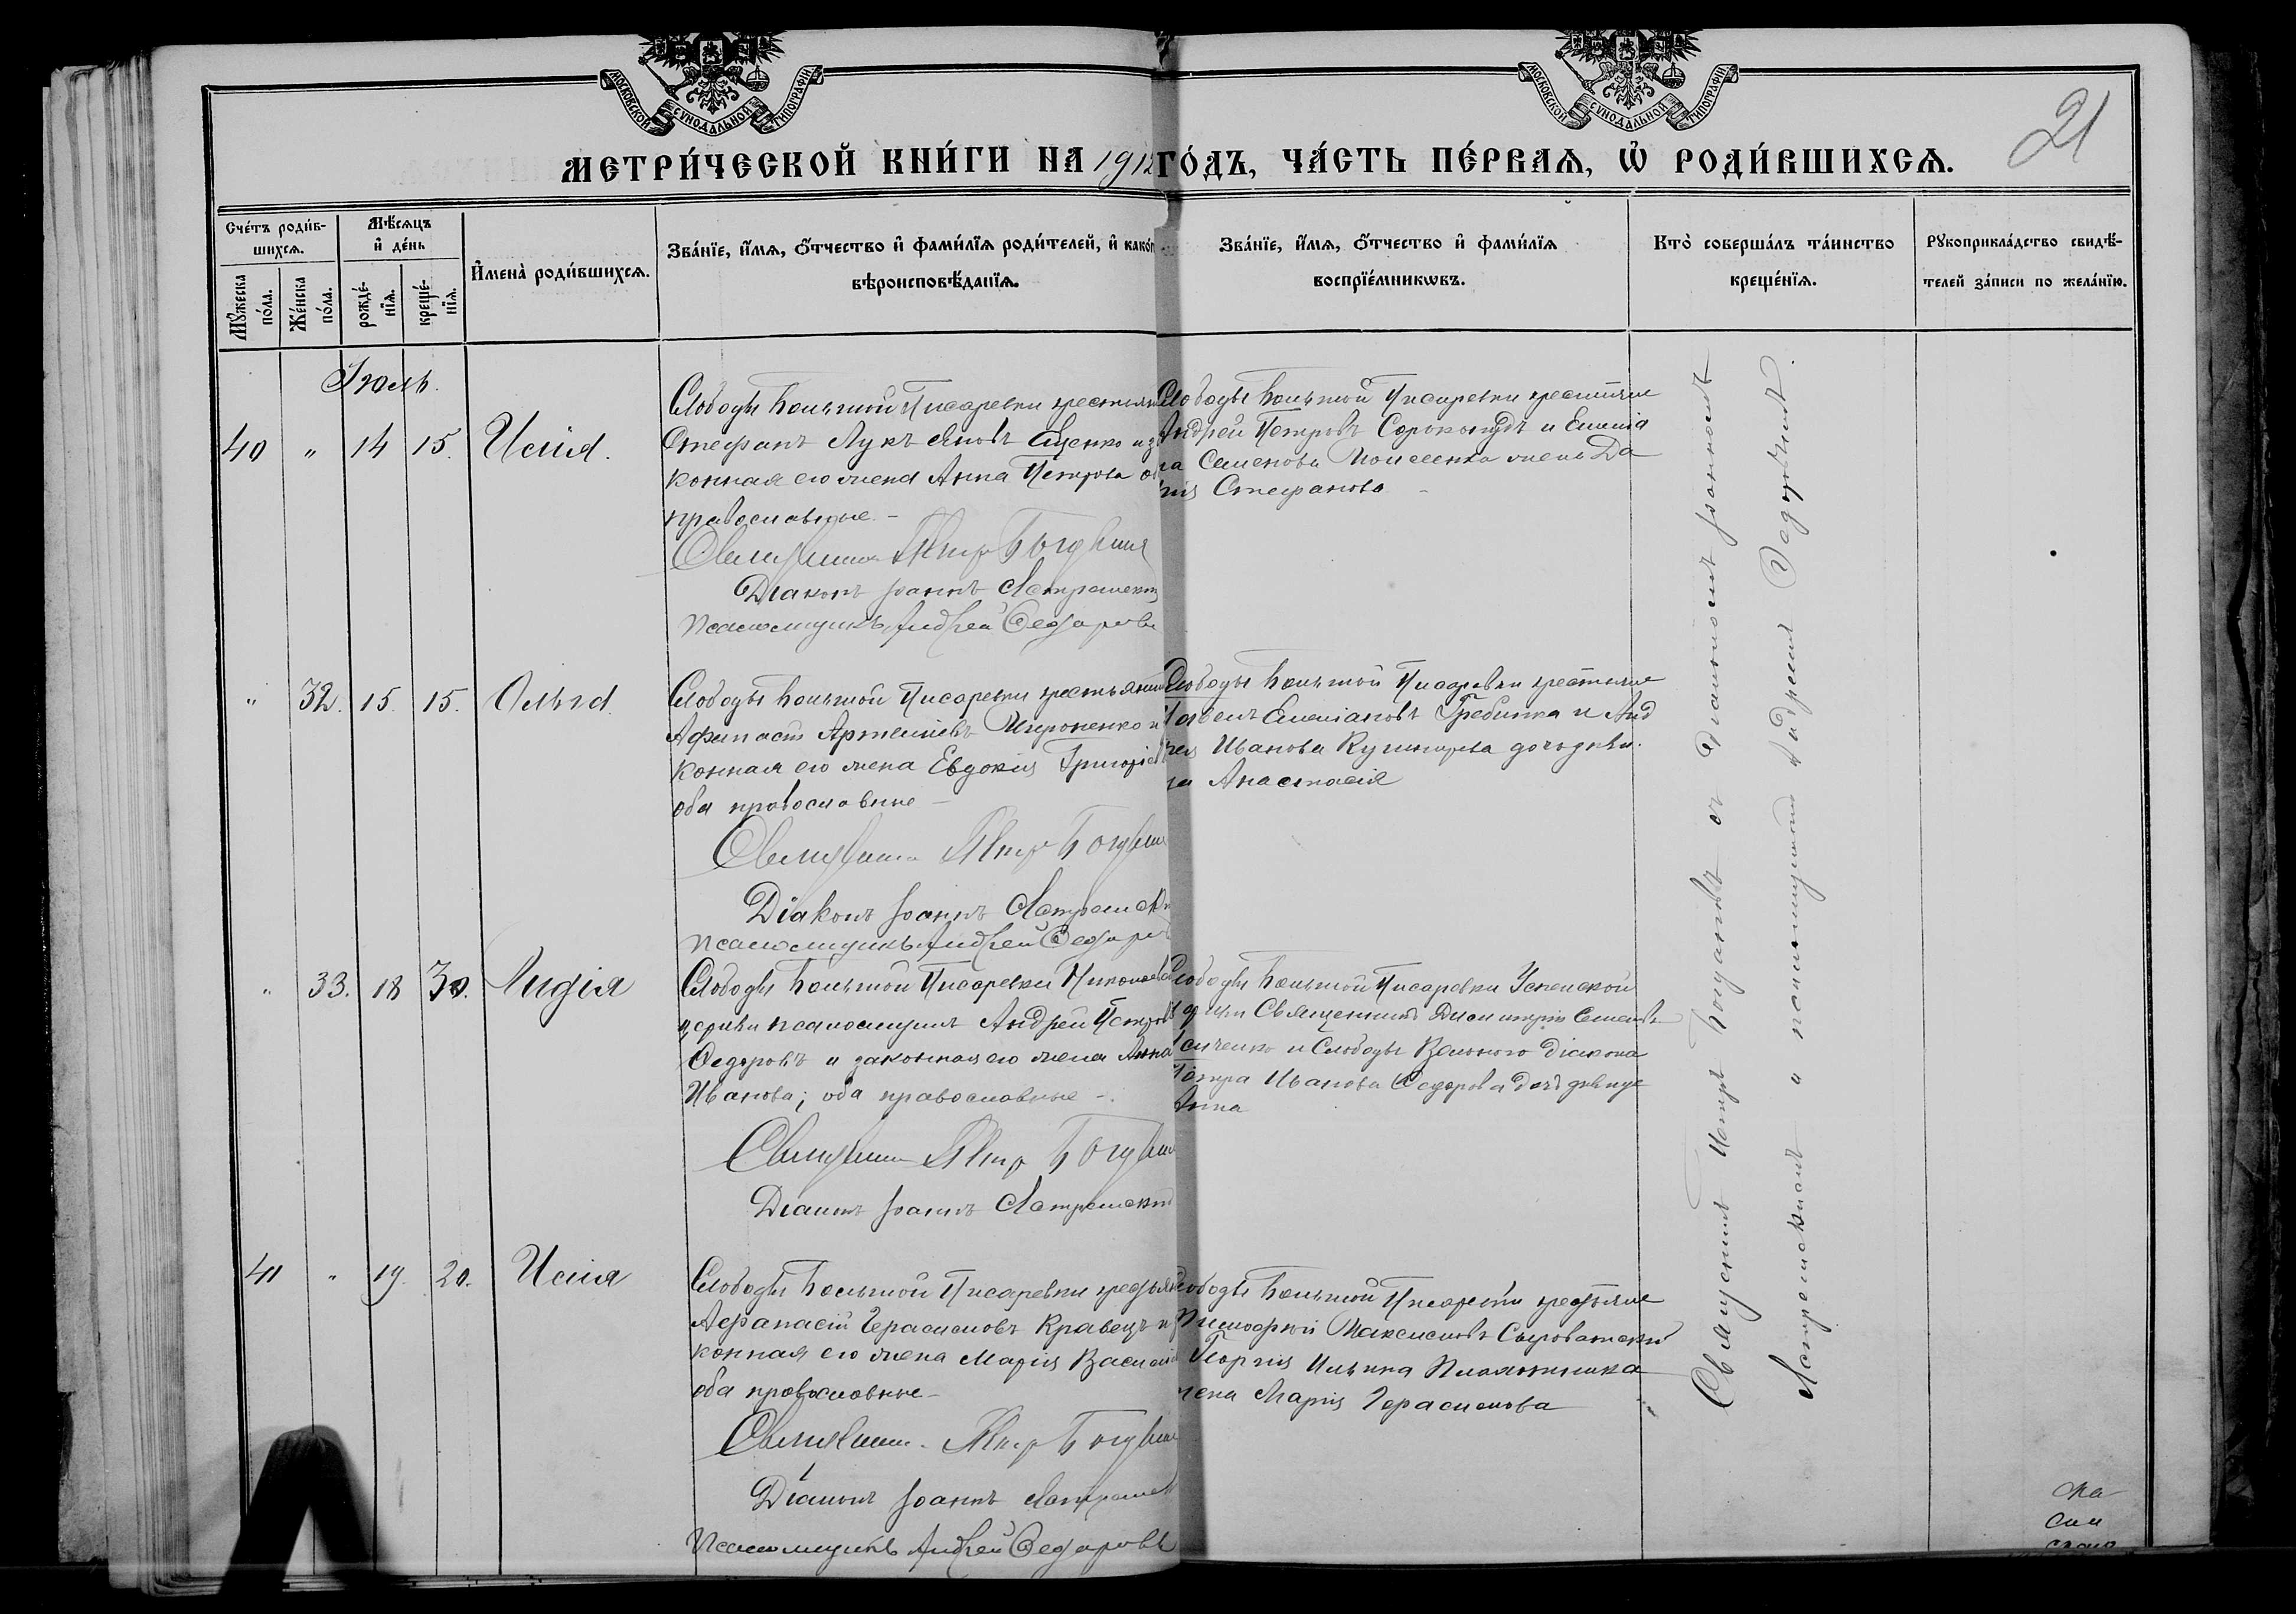 МОСКОВСКОЙ СУНОДАЛЬНОЙ ТИПОГРАФІИ
МОСКОВСКОЙ СУНОДАЛЬНОЙ ТИПОГРАФІИ
21
МЕТРИ́ЧЕСКОЙ КНИ́ГИ НА 1912 ГО́ДЪ, ЧА́СТЬ ПЕ́РВАЯ, Ѿ РОДИ́ВШИХСЯ.
Сче́тъ роди́в-
шихся.
Мѣ́сяцъ
и де́нь
Мꙋ́жеска по́ла.
Же́нска по́ла.
рожде́-
нїя.
креще́-
нїя.
И҆мена̀ роди́вшихся.
Зва́нїе, и҆́мя, ѻ҆́тчество и҆ фами́лїя роди́телей, и҆ како́г
вѣроисповѣ́данїя.
Зва́нїе, и҆́мя, ѻ҆́тчество и҆ фами́лїя
воспрїе́мникѡвъ.
Кто̀ соверша́лъ та́инство
креще́нїя.
Рꙋкоприкла́дство свидѣ́-
телей за́писи по жела́нїю.
Іюль.
40 " 14 15. Илія.
Слободы Большой Писаревки крестьян
Стефанъ Лукъяновъ Ещенко и за
конная его жена Анна Петрова об
православные. –
Священникъ Петр Богдан
Діаконъ Іоаннъ
Псаломщикъ Андрей Федоровъ
Слободы Большой Писаревки крестьяне
Андрей Петровъ Сорокопудъ и Емилія
на Семенова Моисеенка жена Да
рія Стефанова –
" 32. 15. 15. Ольга
Слободы Большой Писаревки крестьянин
Афанасій Артеміевъ Мироненко и
конная его жена Евдокія Григоріев
оба православные –
Священникъ Петр Богдан
Діаконъ Іоаннъ
Псаломщикъ Андрей Федоров
Слободы Большой Писаревки крестьяне
Павелъ Емеліановъ Гребинка и Анд
рея Иванова дочь дѣви
ца Анастасія
" 33. 18 30. Лидія
Слободы Большой Писаревки Николаевс
церкви псаломщикъ Андрей Петров
Федоровъ и законная его жена Анна
Иванова; оба православные –.
Священникъ Петр Богдан
Діаконъ Іоаннъ
Слободы Большой Писаревки Успенской
церкви Священникъ Димитрій Семеновъ
и Слободы Вольного діакона
Петра Иванова Федорова дочь дѣвица
Анна
41 " 19. 20. Илія
Слободы Большой Писаревки крестьян
Афанасій Герасимовъ Кравецъ и з
конная его жена Марія Василіев
оба православные –
Священникъ Петр Богдан
Діаконъ Іоаннъ
Псаломщикъ Андрей Федоровъ
Слободы Большой Писаревки крестьяне
Тимофей Максимовъ Сыроватский
Георгія Ильина
жена Марія Герасимова
Священникъ Петръ Богдановъ съ Діакономъ Іоанномъ
и псаломщикомъ Андреемъ Федоровымъ.